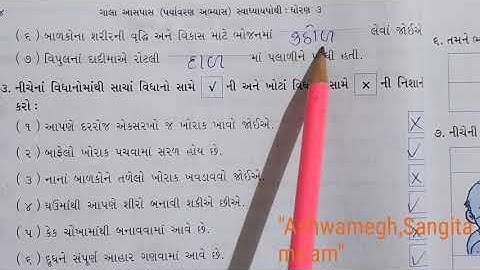 ચાલો આસપાસ (પર્યાવરણ અભ્યાસ) સ્વાધ્યાયપોથી : ધોરણ ૩
(૬) બાળકોના શરીરની વૃદ્ધિ અને વિકાસ માટે ભોજનમાં કઠોળ લેવાં જોઈએ
(૭) વિપુલનાં દાદીમાએ રોટલી દાળ માં પલાળીને હતી.
૩. નીચેનાં વિધાનોમાંથી સાચાં વિધાનો સામે ✓ ની અને ખોટાં સામે × ની નિશાની
કરો :
(૧) આપણે દરરોજ એકસરખો જ ખોરાક ખાવો જોઈએ. ×
(૨) બાફેલો ખોરાક પચવામાં સરળ હોય છે. ✓
(૩) નાનાં બાળકોને તળેલો ખોરાક ખવડાવવો જોઈએ. ×
(૪) ઘઉંમાંથી આપણે શીરો બનાવી શકીએ છીએ. ✓
(૫) કેક ચોખામાંથી બનાવવામાં આવે છે. ×
(૬) દૂધને સંપૂર્ણ આહાર ગણવામાં આવે છે. ✓
૬. તમને
૭. નીચેની
"Ashwamegh,Sangita